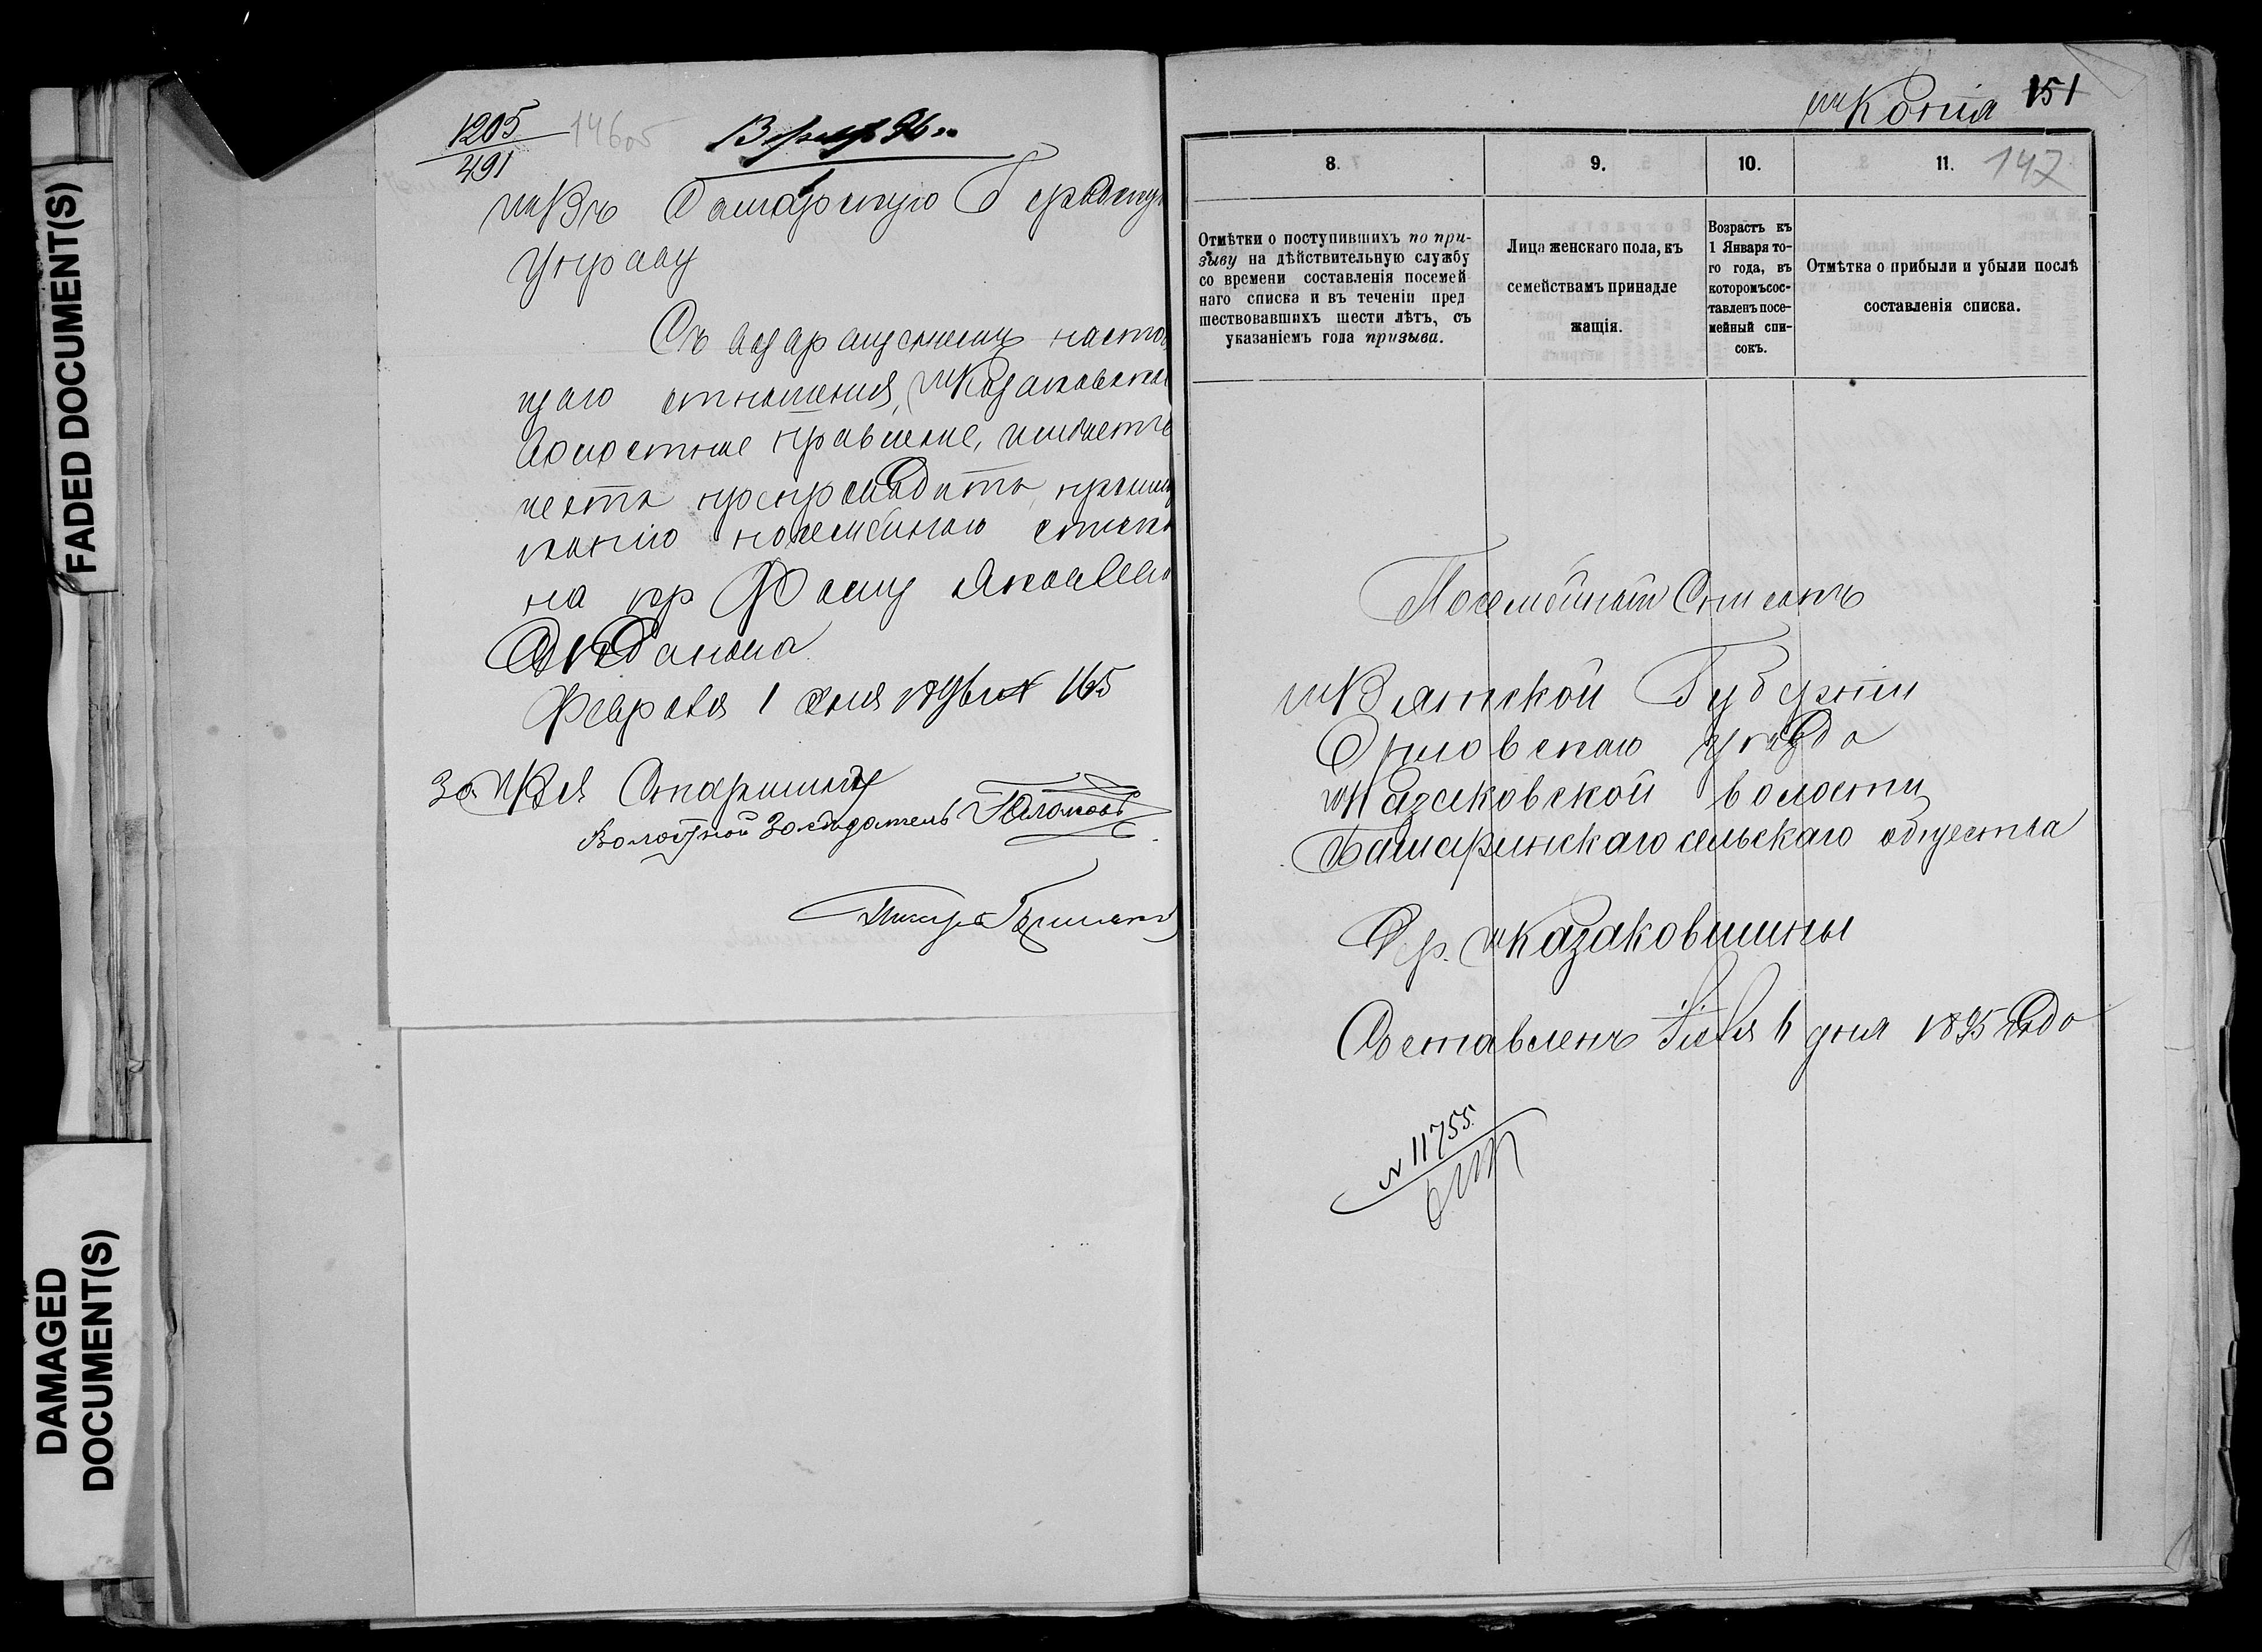 FADED DOCUMENT(S)
DAMAGED DOCUMENT(S)
1205
491
146об
13 февр 96 г.
Въ Самарскую Городскую
Управу
Съ возвращениемъ насто
щаго отношения, Казаковское
Волостное правление, имѣетъ
честь препроводить, при
копiю посемейнаго списка
на кр Фому Яковлева
Февраля 1 дня 1896 г. № 165
За Старшину
Волостной Засѣдатель
Писарь
Копiя 151
147
8. 9. 10. 11.
Отмѣтки о поступившихъ по при-
зыву на дѣйствительную службу
со времени составленія посемей
наго списка и въ теченіи пред
шествовавшихъ шести лѣтъ, съ
указаніемъ года призыва.
Лица женскаго пола, къ
семействамъ принадле
жащія.
Возрастъ къ
1 Января то-
го года, въ
которомъ сос-
тавленъ посе-
мейный спи-
сокъ.
Отмѣтка о прибыли и убыли послѣ
составленія списка.
Посемейный Списокъ
Вятской Губернiи
Орловскаго уѣзда
Казаковской волости
сельскаго общества
Дер. Казаковщины
Составленъ Iюля 6 дня 1895 года
№ 11755